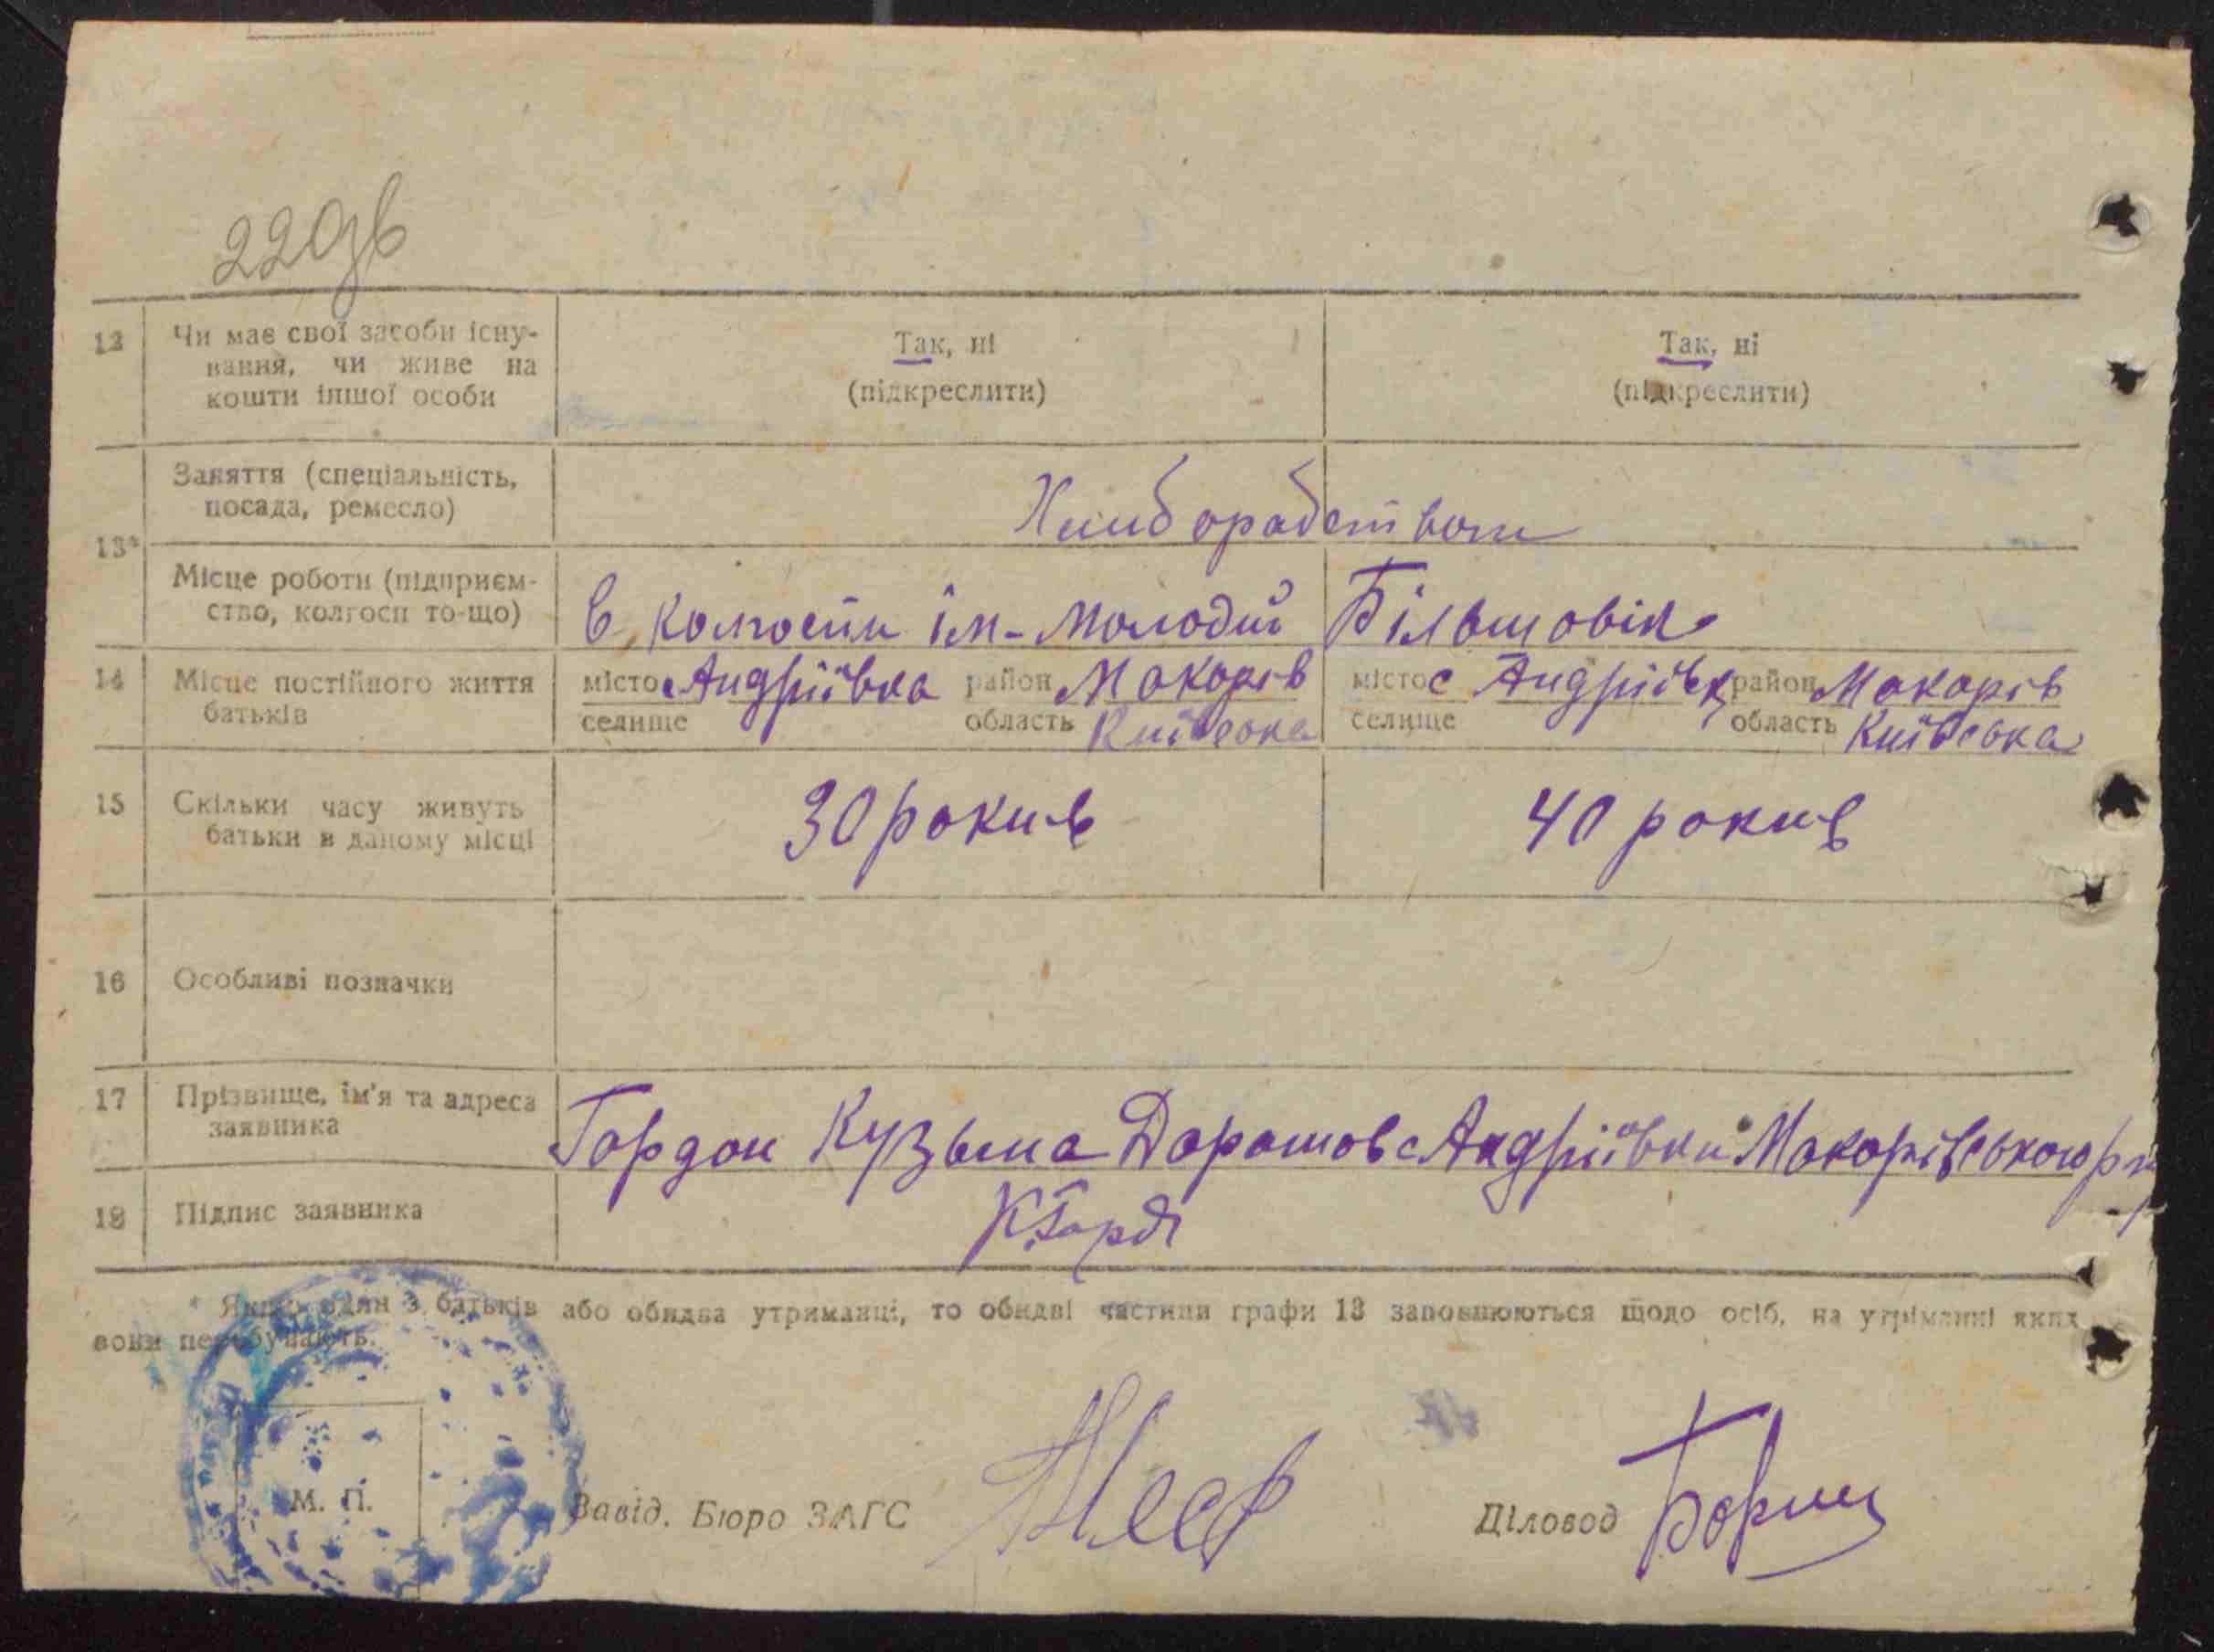 220зв
12 Чи має свої засоби існу- Так, ні Так, ні
вання, чи живе на
кошти іншої особи (підкреслити) (підкреслити)
Заняття (спеціальність,
посада, ремесло) Хлиборабством
13*
Місце роботи (підприєм-
ство, колгосп то-що) в колгоспи ім-Молодий Більшовік
14 Місце постійного життя місто с Андріївка район Макарів місто с Андріївк район Макарів
батьків селище область Київська селище область Київська
15 Скільки часу живуть 30 рокив 40 рокив
батьки в даному місці
16 Особливі позначки
17 Прізвище, ім'я та адреса
заявника Гордон Кузьма Дорошов с Андріївки Макарівського р
18 Підпис заявника К.Горд
* Якщо один з батьків або обидва утриманці, то обидві частини графи 13 заповнюються щодо осіб, на утріманні яких
вони перебувають.
М. П.
Завід. Бюро ЗАГС Діловод